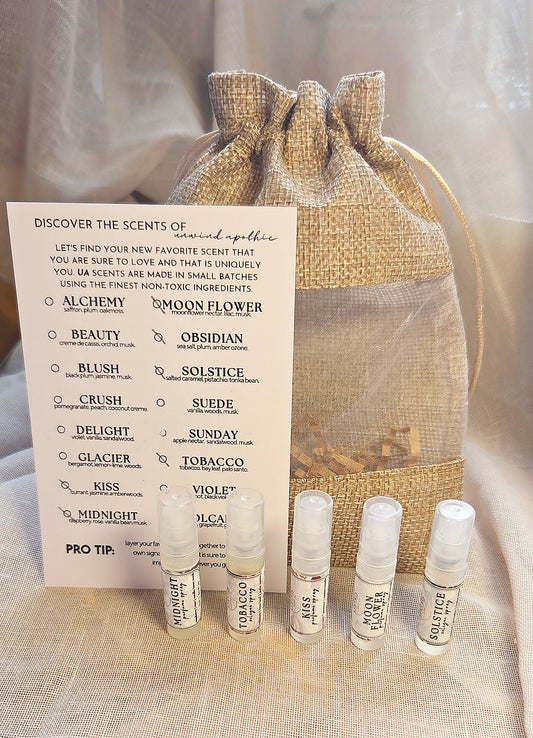 DISCOVER THE SCENTS OF
unwind apothic
LET'S FIND YOUR NEW FAVORITE SCENT THAT
YOU ARE SURE TO LOVE AND THAT IS UNIQUELY
YOU. UA SCENTS ARE MADE IN SMALL BATCHES
USING THE FINEST NON-TOXIC INGREDIENTS.
ALCHEMY
saffron, plum, oakmoss.
BEAUTY
creme de cassis, orchid, musk.
BLUSH
black plum, jasmine, musk.
CRUSH
pomegranate, peach, coconut creme.
DELIGHT
violet, vanilla, sandalwood.
GLACIER
bergamot, lemon-lime, woods.
KISS
currant, jasmine, amberwoods.
MIDNIGHT
raspberry, rose, vanilla bean, musk.
MOON FLOWER
moonflower nectar, lilac, musk.
OBSIDIAN
sea salt, plum, amber ozone.
SOLSTICE
salted caramel, pistachio, tonka bean.
SUEDE
vanilla, woods, musk.
SUNDAY
apple nectar, sandalwood, musk.
TOBACCO
tobacco, bay leaf, palo santo.
VIOLET
black
grapefruit,
PRO TIP:
layer your
together to
own
it is sure to
you go
MIDNIGHT
perfume spray
TOBACCO
cologne spray
KISS
perfume spray
MOON
FLOWER
perfume spray
SOLSTICE
cologne spray